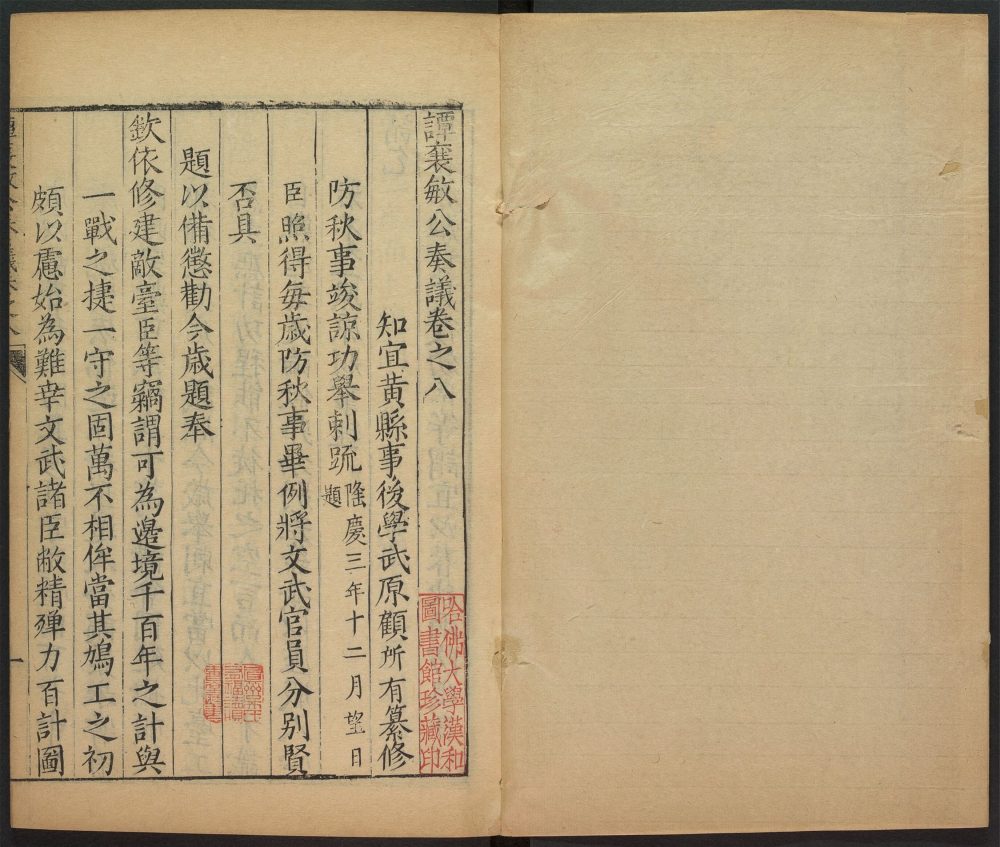 譚襄敏公奏議卷之八
知宜黃縣事後學武原顧所有纂修
防秋事竣諒功舉刺疏隆慶三年十二月望日題
臣照得每歲防秋事畢例將文武官員分別賢
否具
題以備懲勸今歲題奉
欽依修建敵臺臣等竊謂可為邊境千百年之計與
一戰之捷一守之固萬不相侔當其鳩工之初
頗以慮始為難幸文武諸臣敝精殫力百計圖
一
哈佛大學漢和
圖書館珍藏印